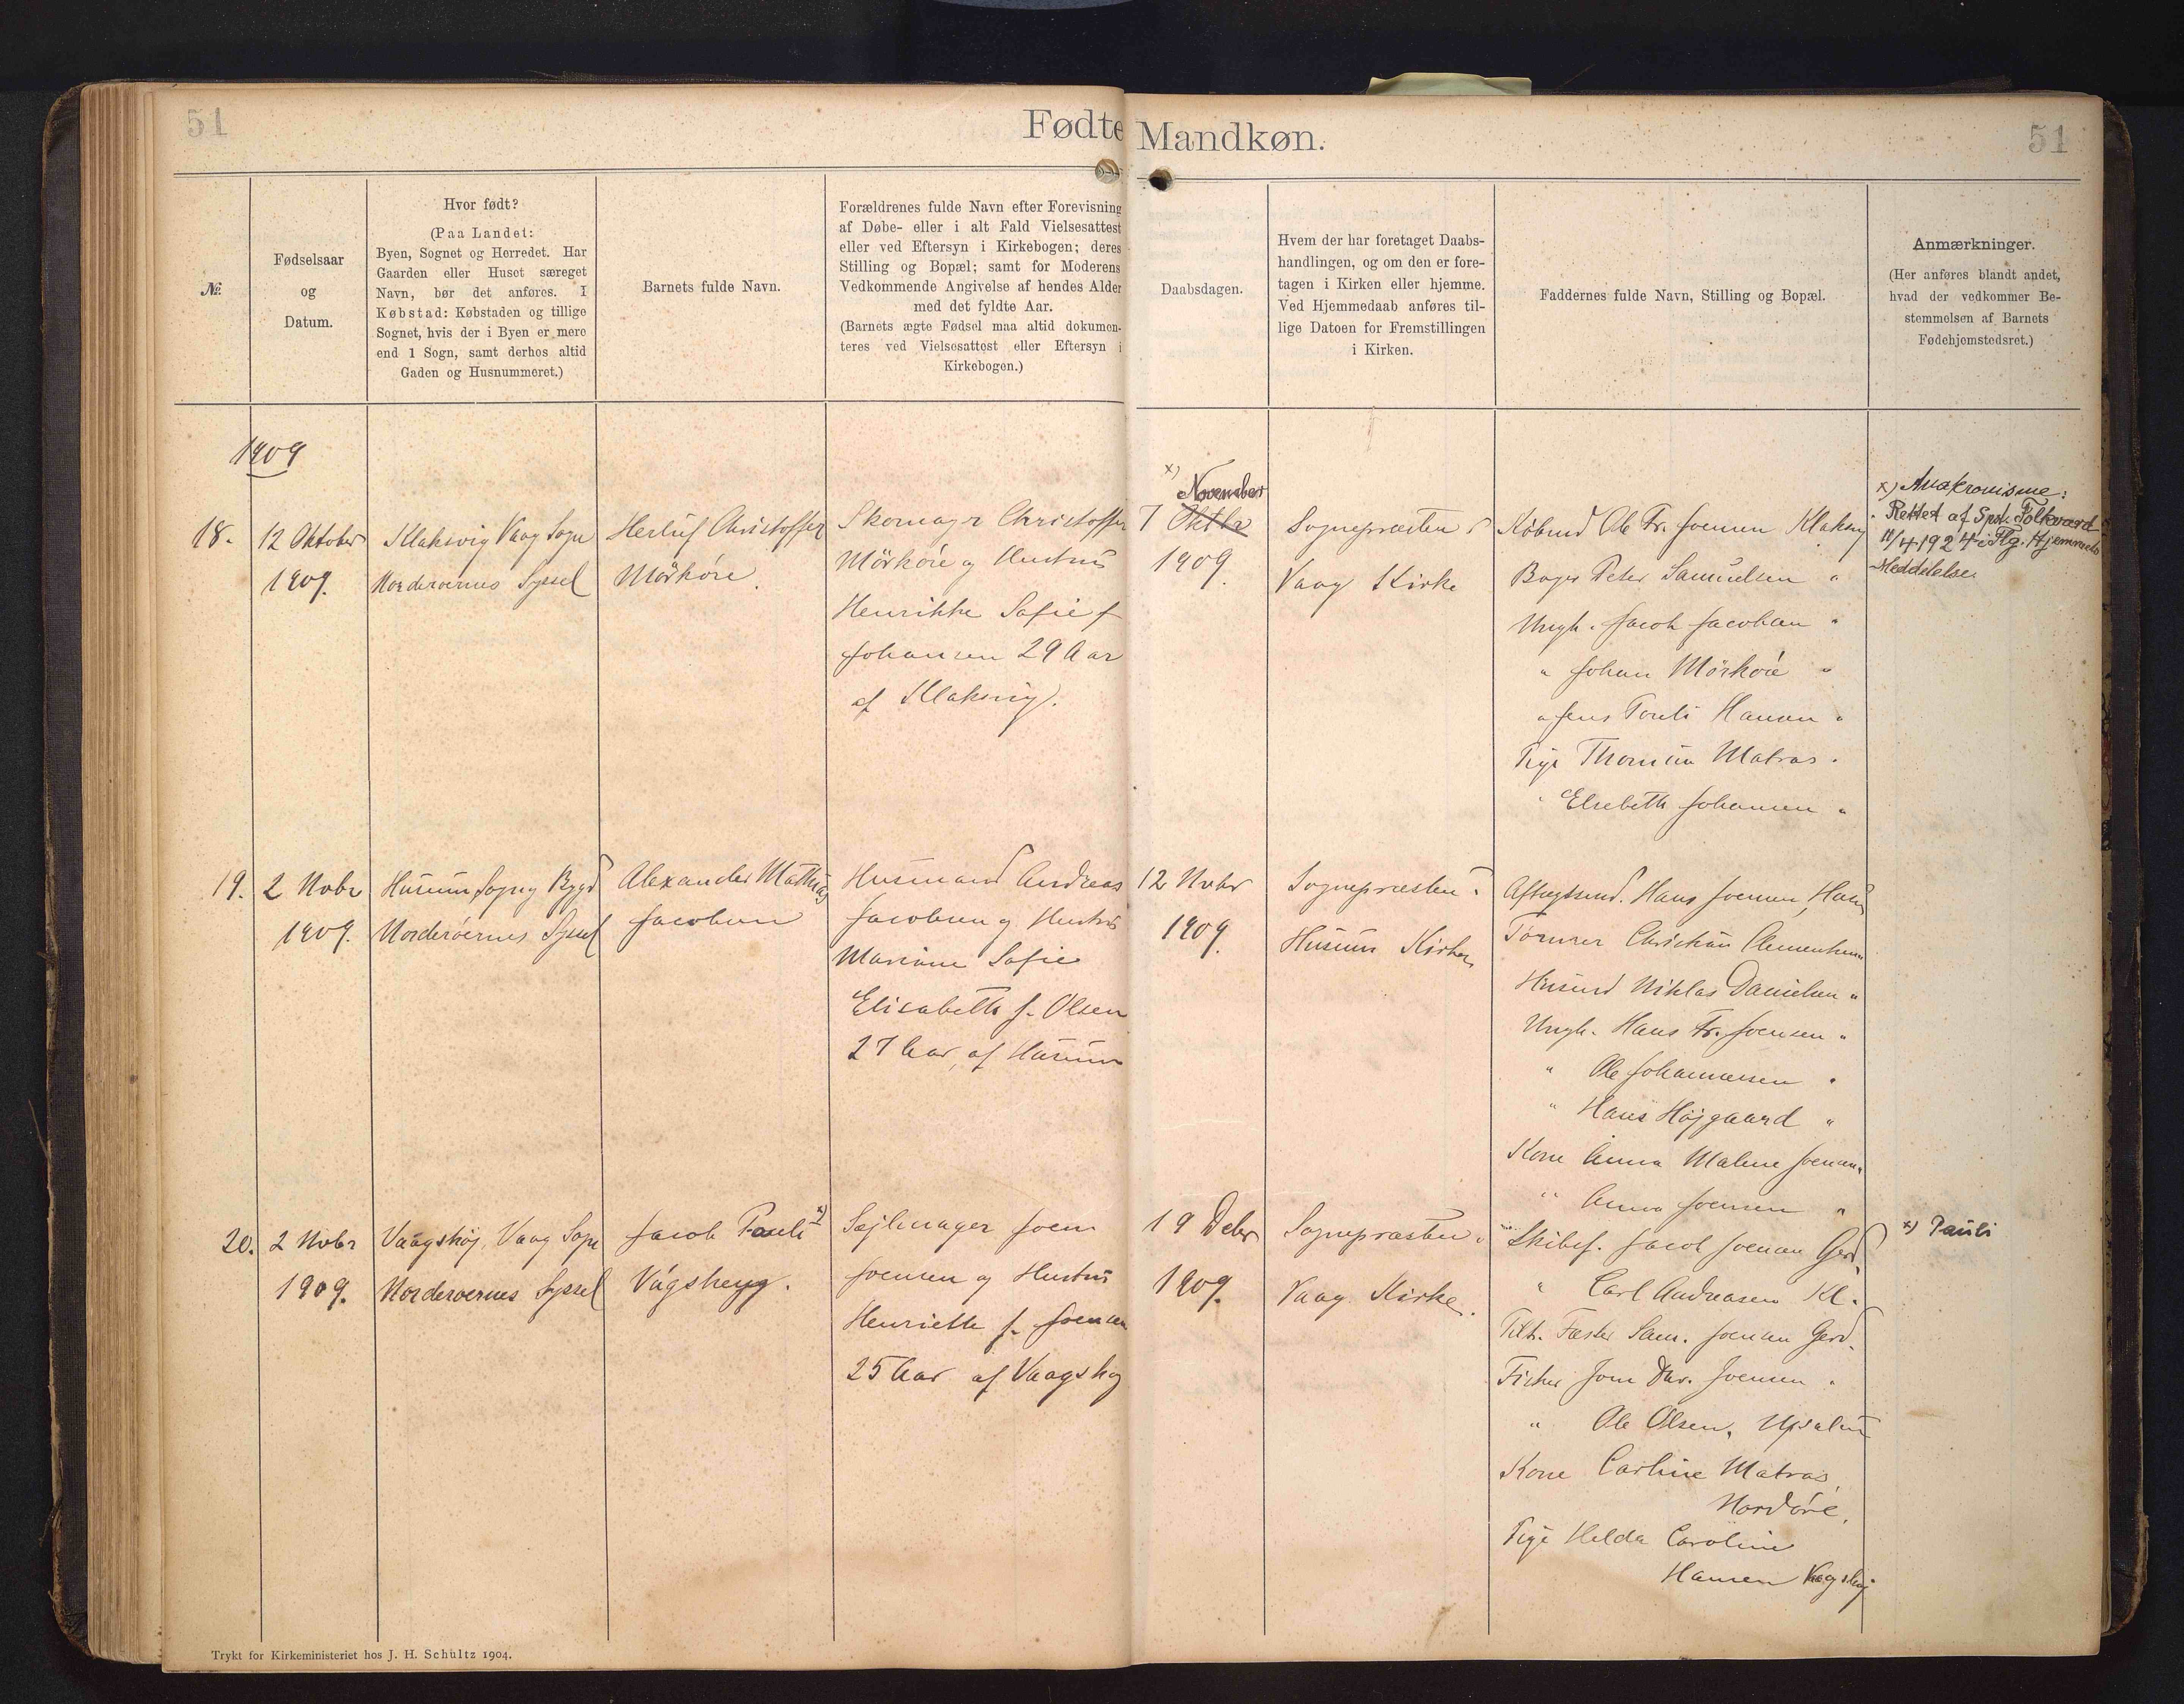 51
Fødte Mandkøn.
51
№.
Fødselsaar
og
Datum.
Hvor født?
(Paa Landet:
Byen, Sognet og Herredet. Har
Gaarden eller Huset særeget
Navn, bør det anføres. I
Købstad: Købstaden og tillige
Sognet, hvis der i Byen er mere
end 1 Sogn, samt derhos altid
Gaden og Husnummeret.)
Barnets fulde Navn.
Forældrenes fulde Navn efter Forevisning
af Døbe- eller i alt Fald Vielsesattest
eller ved Eftersyn i Kirkebogen; deres
Stilling og Bopæl; samt for Moderens
Vedkommende Angivelse af hendes Alder
med det fyldte Aar.
(Barnets ægte Fødsel maa altid dokumen-
teres ved Vielsesattest eller Eftersyn i
Kirkebogen.)
Daabsdagen.
Hvem der har foretaget Daabs-
handlingen, og om den er fore-
tagen i Kirken eller hjemme.
Ved Hjemmedaab anføres til-
lige Datoen for Fremstillingen
i Kirken.
Faddernes fulde Navn, Stilling og Bopæl.
Anmærkninger.
(Her anføres blandt andet,
hvad der vedkommer Be-
stemmelsen af Barnets
Fødehjemstedsret.)
1909
18.
12 Oktober
1909.
Klaksvig Vaag Sogn
Norderøernes Syssel
Herluf Christoffer
Mörköre.
Skomager Christoffer
Mörköre og Hustru
Henrikke Sofie f
Johansen 29 Aar
af Klaksvig.
x) November
7 Oktbr
1909.
Sognepræsten i
Vaag Kirke
Købmd Ole Fr. Joensen Klaksvig
Bager Peter Samuelsen "
Ungk. Jacob Jacobsen "
" Johan Mörköre "
" Jens Pouli Hansen "
Pige Thomina Matras "
" Elsebeth Johansen "
x) Anakronisme:
Rettet af Spst. Folkvard
11/4 1924 i Flg. Hjemmets
Meddelelse
19.
2 Novbr
1909.
Husum Sogn og Bygd
Norderøernes Syssel
Alexander Mathias
Jacobsen
Husmand Andreas
Jacobsen og Hustru
Mariane Sofie
Elisabeth f. Olsen
27 Aar, af Husum
12 Novbr
1909.
Sognepræsten i
Husum Kirke
Aftægtsmd. Hans Joensen, Husum
Tømrer Christian Clementsen
Husmd Niklas Danielsen "
Ungk. Hans Fr. Joensen "
" Ole Johannesen "
" Hans Højgaard "
Kone Anna Malene Joensen "
" Anna Joensen "
20.
2 Novbr
1909.
Vaagshøj, Vaag Sogn
Norderøernes Syssel
Jacob Pauli x)
Vágsheyg.
Sejlmager Joen
Joensen og Hustru
Henriette f. Joensen
25 Aar af Vaagshøj
19 Debr
1909.
Sognepræsten i
Vaag Kirke.
Skibsf. Jacob Joensen Gerd.
" Carl Andreasen Kl.
Fæster Sam. Joensen Gerd.
Fisker Joen Dav. Joensen "
" Ole Olsen, Upsalum
Kone Carline Matras,
Nordøre,
Pige Helda Caroline
Hansen Vaagshøj
x) Pauli
Trykt for Kirkeministeriet hos J. H. Schultz 1904.